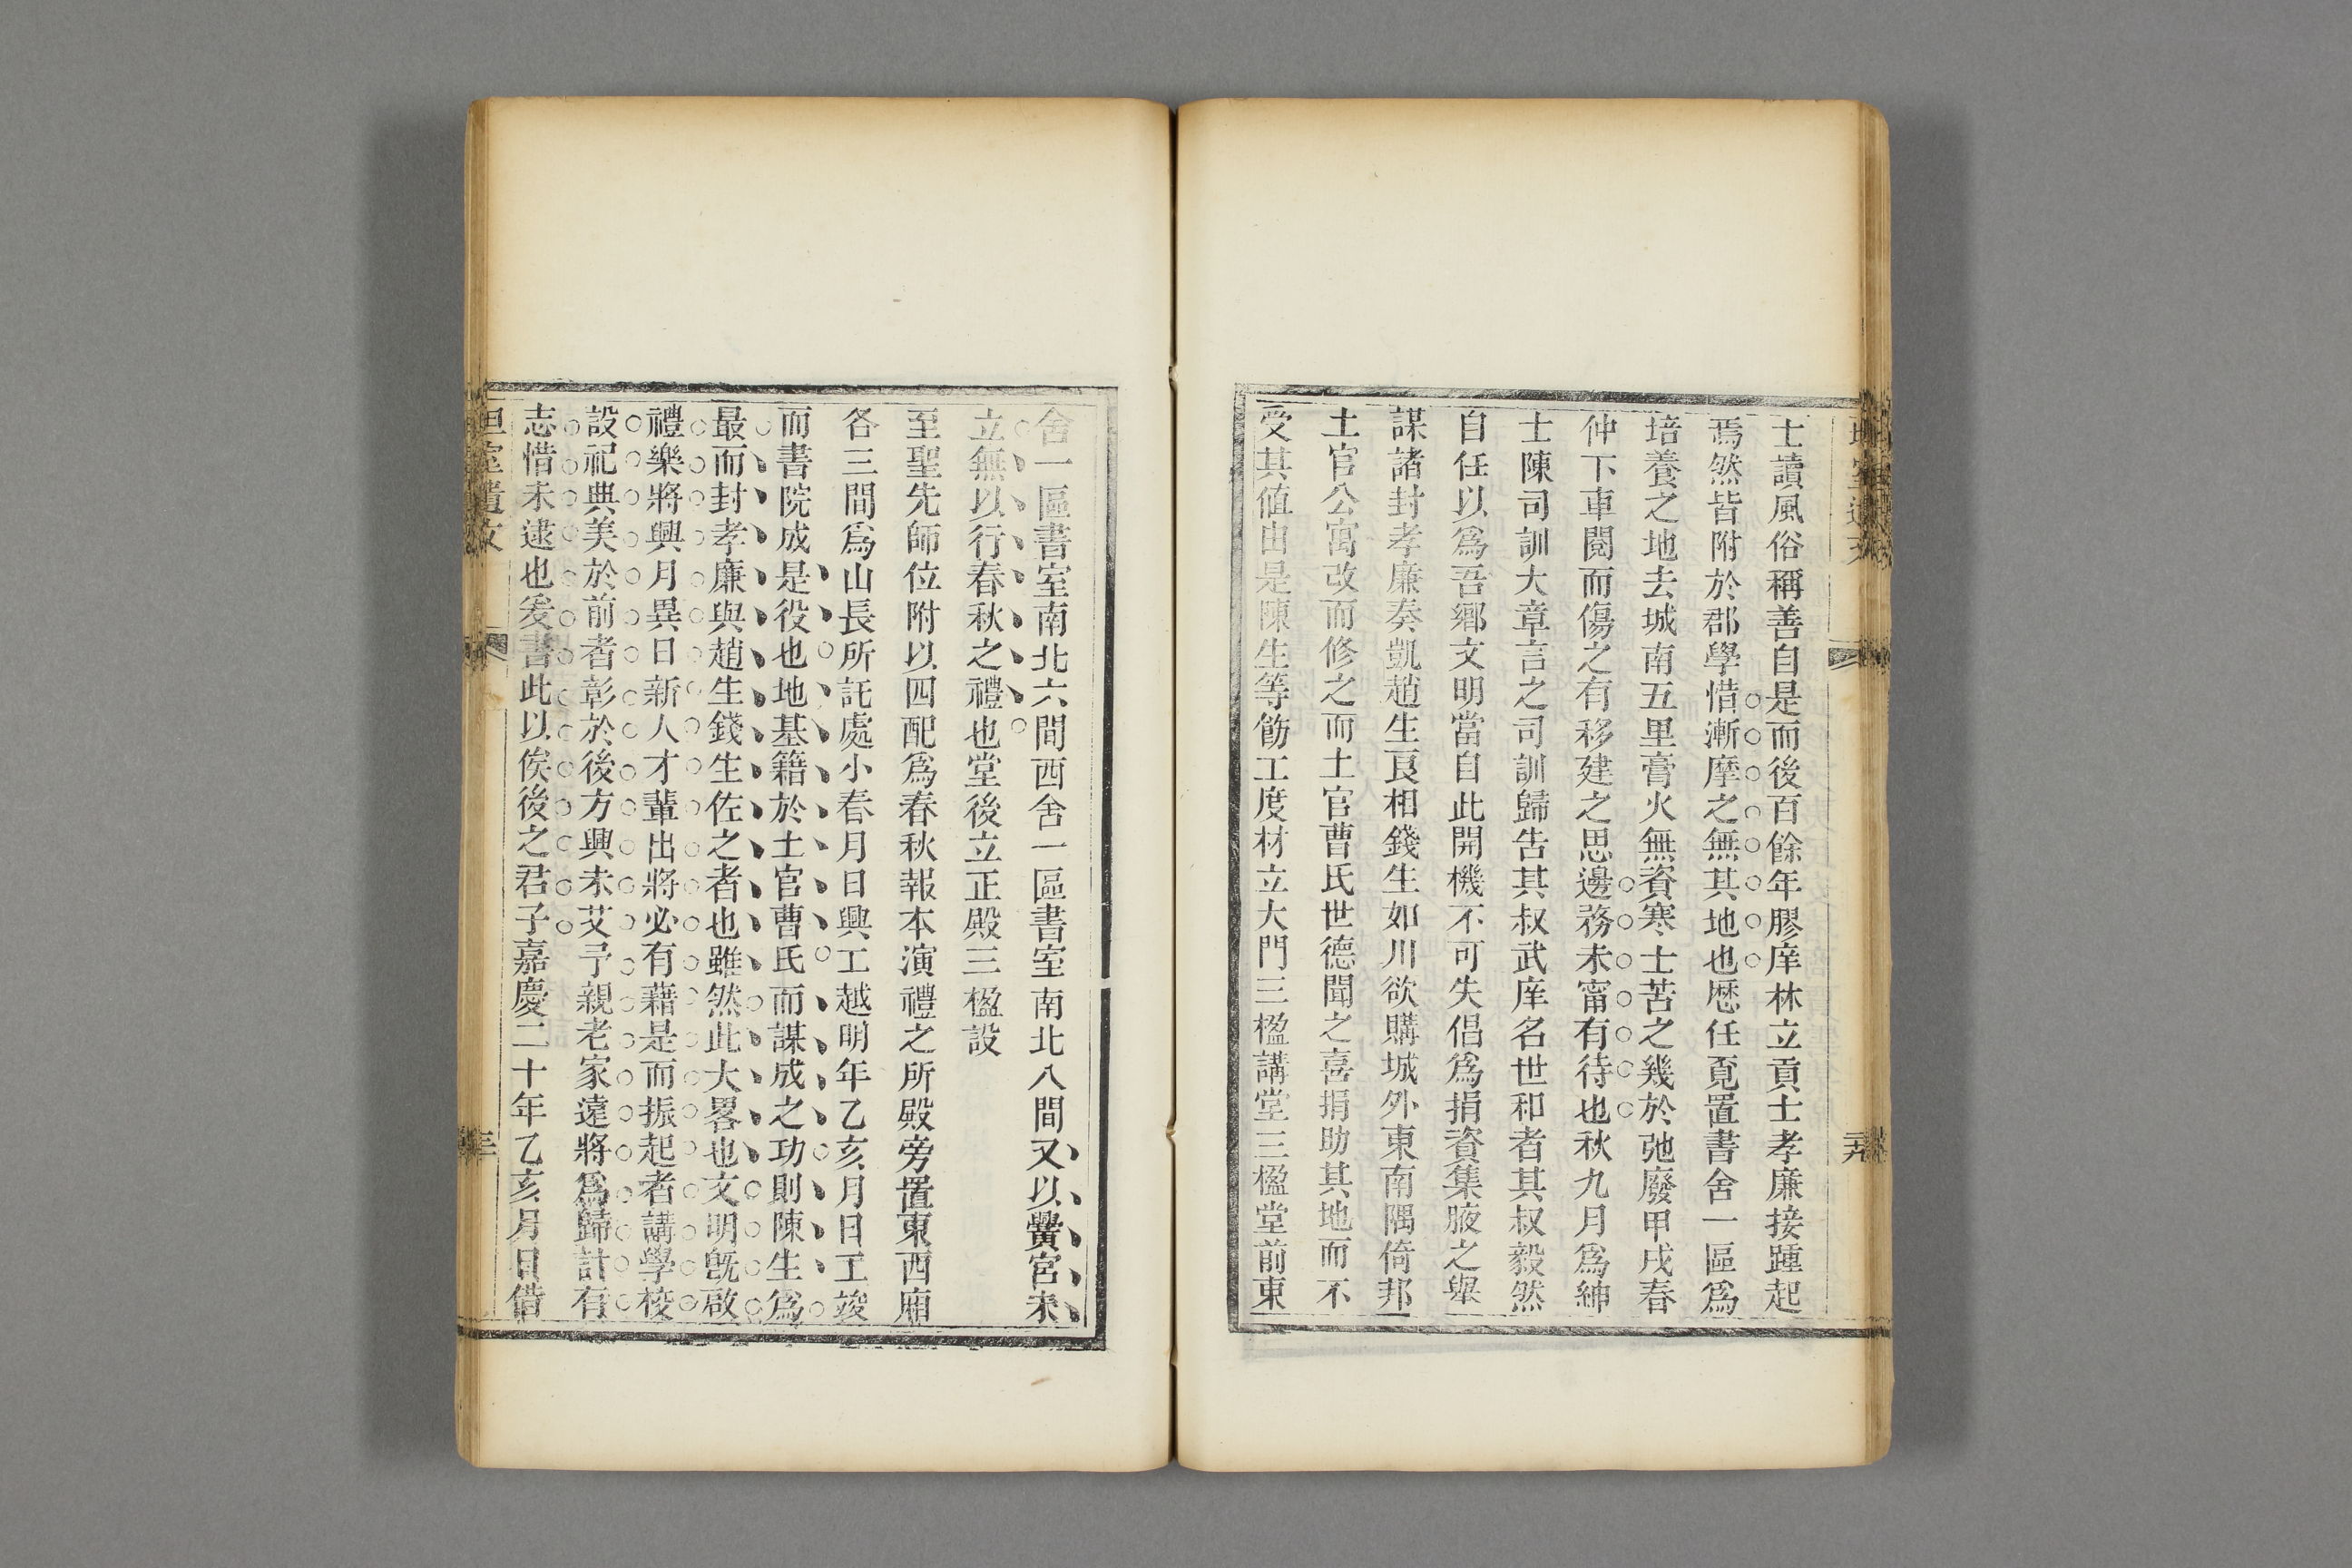 士讀風俗稱善自是而後百餘年膠庠林立貢士孝廉接踵起
焉然皆附於郡學惜漸摩之無其地也歷任覔置書舍一區爲
培養之地去城南五里膏火無資寒士苦之幾於弛廢甲戌春
仲下車閱而傷之有移建之思邊務未甯有待也秋九月爲紳
士陳司訓大章言之司訓歸告其叔武庠名世和者其叔毅然
自任以爲吾鄉文明當自此開機不可失倡爲捐資集腋之舉
謀諸封孝廉奏凱趙生良相錢生如川欲購城外東南隅倚邦
土官公寓改而修之而土官曹氏世德聞之喜捐助其地而不
受其値由是陳生等飭工度材立大門三楹講堂三楹堂前東
舍一區書室南北六間西舍一區書室南北八間又以黌宮未
立無以行春秋之禮也堂後立正殿三楹設
至聖先師位附以四配爲春秋報本演禮之所殿旁置東西廂
各三間爲山長所託處小春月日興工越明年乙亥月日工竣
而書院成是役也地基籍於土官曹氏而謀成之功則陳生爲
最而封孝廉與趙生錢生佐之者也雖然此大畧也文明旣啟
禮樂將興月異日新人才輩出將必有藉是而振起者講學校
設祀典美於前者彰於後方興未艾予親老家遠將爲歸計有
志惜未逮也爰書此以俟後之君子嘉慶二十年乙亥月日借
坦室遺文
三